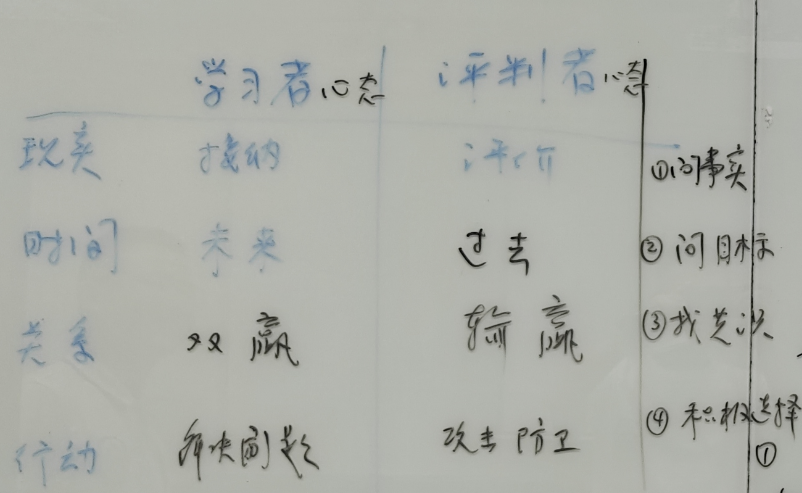 学习者心态 评判者心态
现实 接纳 评价 ①问事实
时间 未来 过去 ②问目标
关系 双赢 输赢 ③找共识
行动 解决问题 攻击防卫 ④积极选择
①